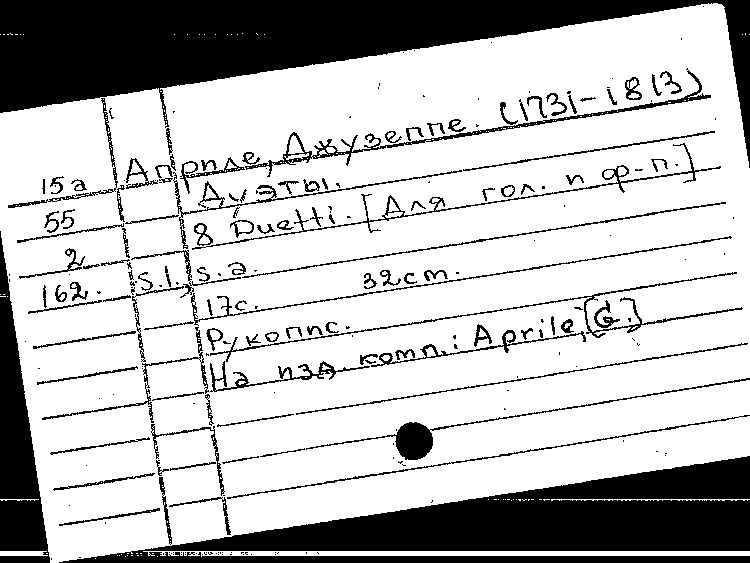 Априле, Джузеппе. (1731-1813)
15а Дуэты.
55 8 Duetti. [Для гол. и ф-п.]
2
162. S.l., s.a.
17с. 32cm.
Рукопис.
На изд. комп.: Aprile, [G.]